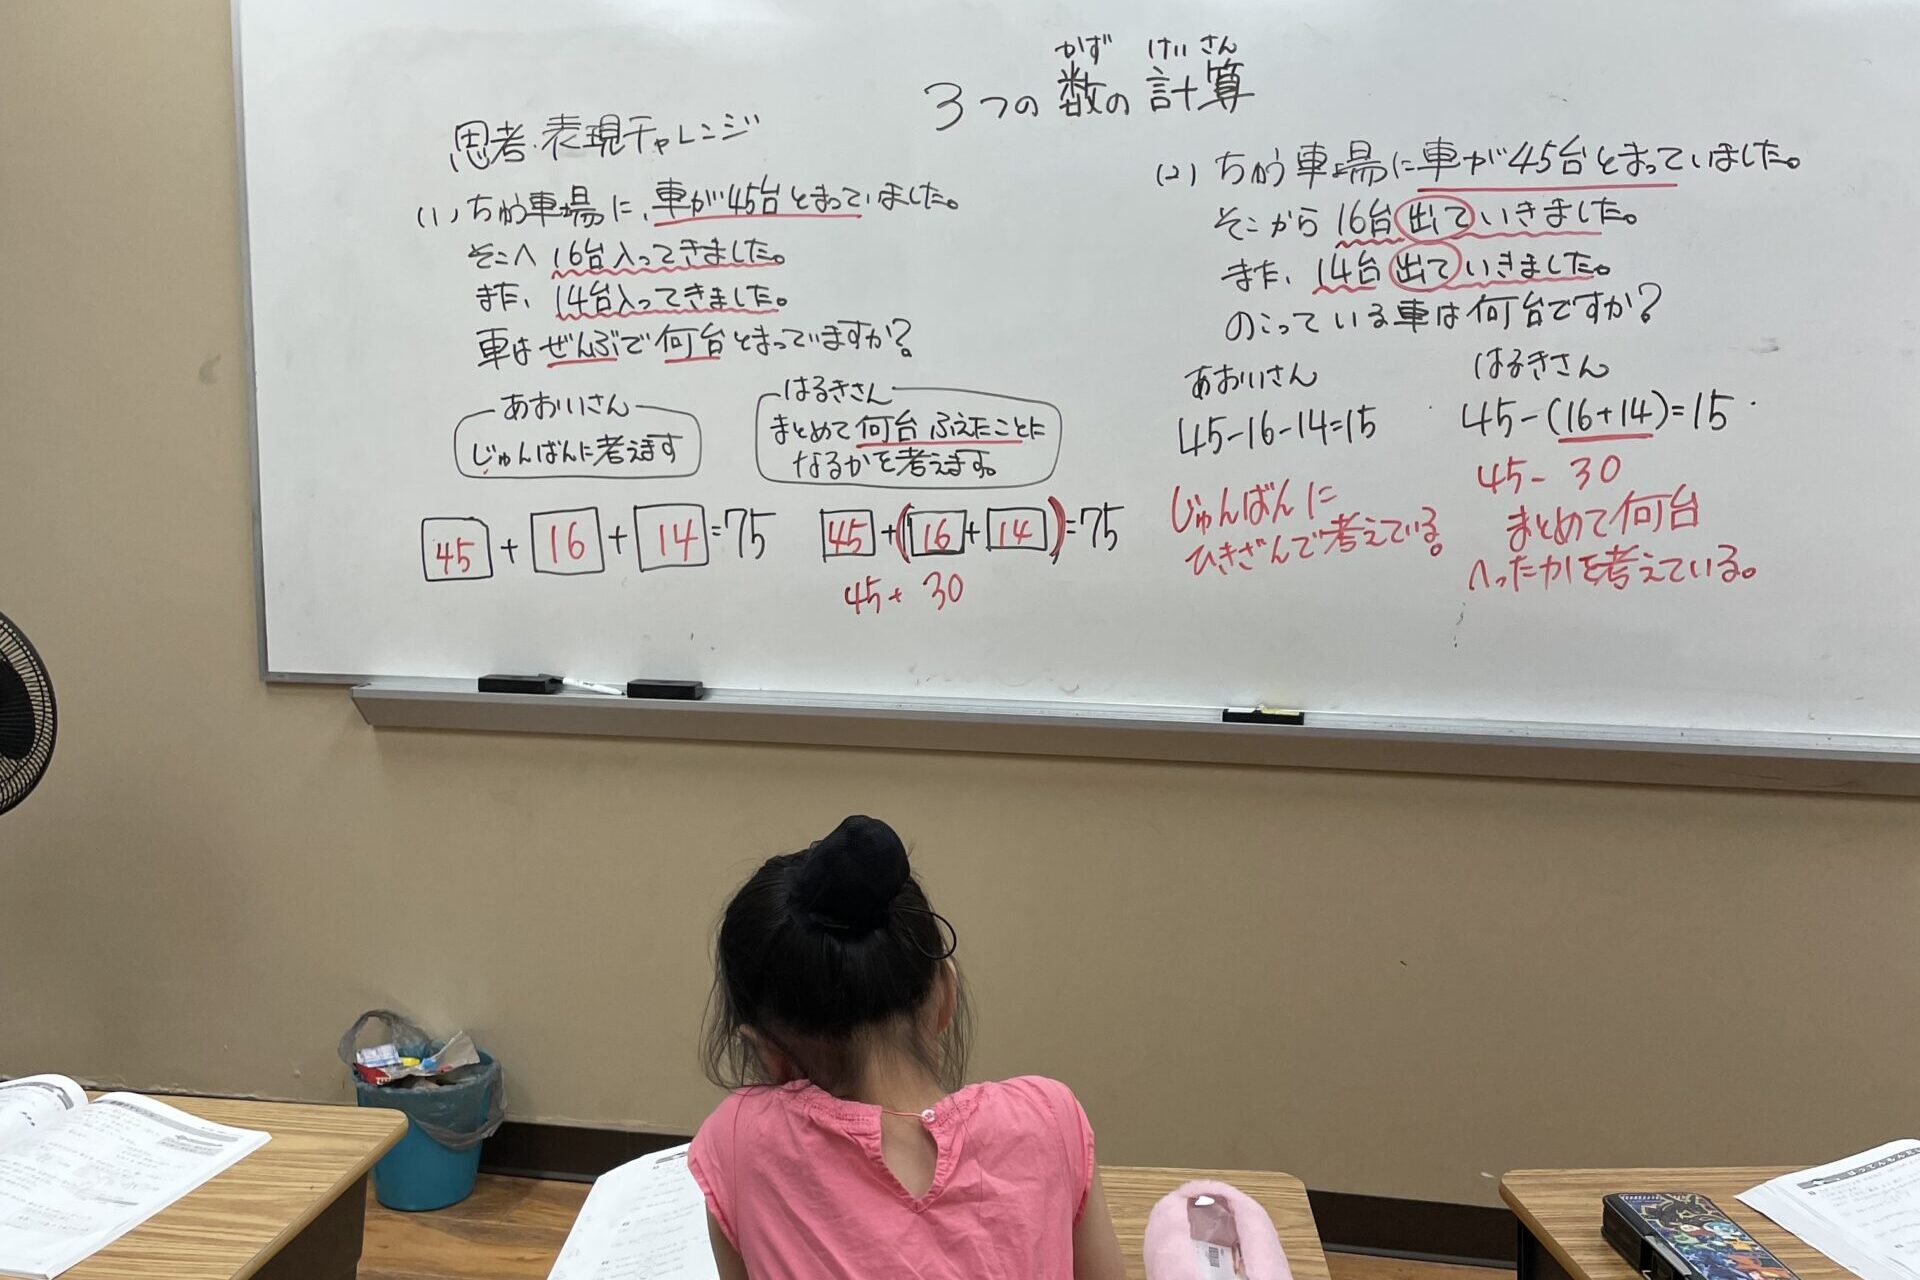 かず けいさん
3つの数の計算
思考・表現チャレンジ
(1) ちゅう車場に、車が45台とまっていました。
そこへ 16台入ってきました。
また、14台入ってきました。
車はぜんぶで何台とまっていますか?
あおいさん
じゅんばんに考えます
はるきさん
まとめて何台ふえたことに
なるかを考えます。
45+16+14=75
45+(16+14)=75
45+30
(2) ちゅう車場に車が45台とまっていました。
そこから 16台出ていきました。
また、14台出ていきました。
のこっている車は何台ですか?
あおいさん
45-16-14=15
じゅんばんに
ひきざんで考えている。
はるきさん
45-(16+14)=15
45-30
まとめて何台
へったかを考えている。